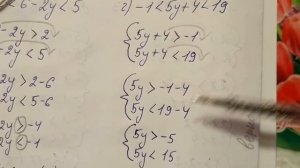 6-2y<5
-2y>2
-2y<5
2y>2-6
2y<5-6
2y>-4
2y<-1
г) -1<5y+4<19
{5y+4>-1
5y+4<19
{5y>-1-4
5y<19-4
{5y>-5
5y<15